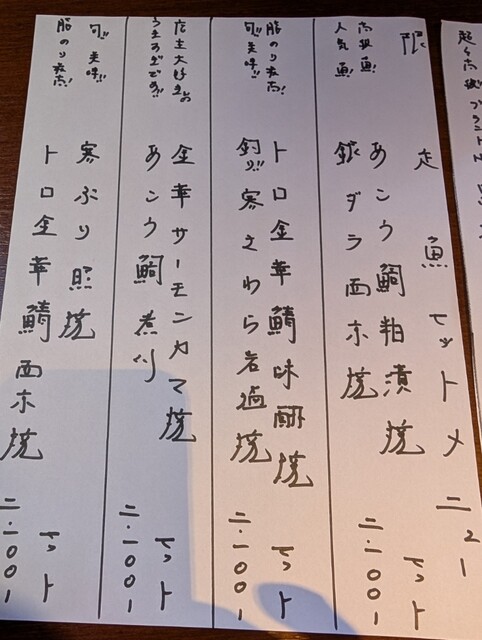 限定魚セットメニュー
高級魚!
人気魚!
あこう鯛粕漬焼
銀ダラ西京焼
セット
二.一〇〇ー
脂のり最高!
旬!!美味!!
トロ金華鯖味醂焼
釣り!!寒さわら若狭焼
セット
二.一〇〇ー
店主大好きの
うますぎです!!
金華サーモンカマ焼
あこう鯛煮付
セット
二.一〇〇ー
旬!!美味!!
脂のり最高!
寒ぶり照焼
トロ金華鯖西京焼
セット
二.一〇〇ー